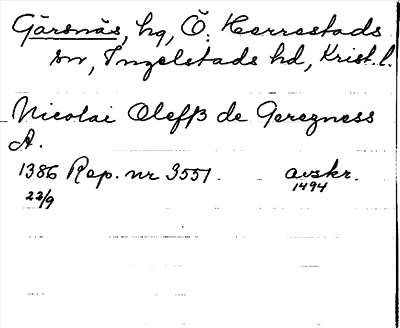 Gärsnäs, hg, Ö. Herrestads
sn, Ingelstads hd, Krist. l.
Nicolai Oleffß de Gerezness
A.
1386 Rep. nr 3551. avskr.
22/9 1494